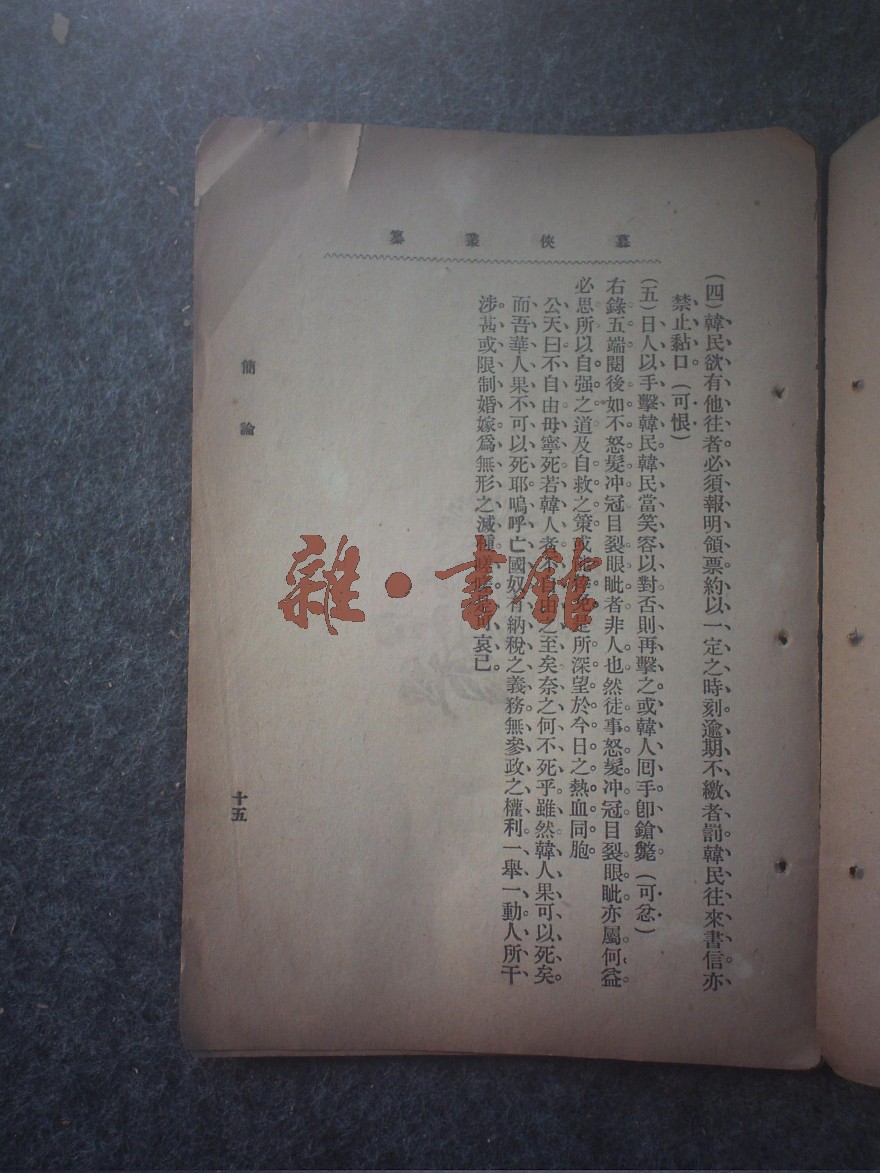 慕俠叢纂
(四)韓民欲有他往者必須報明領票約以一定之時刻逾期不繳者罰韓民往來書信亦
禁止黏口(可恨)
(五)日人以手擊韓民韓民當笑容以對否則再擊之或韓人囘手卽鎗斃(可忿)
右錄五端閱後如不怒髮冲冠目裂眼眦者非人也然徒事怒髮冲冠目裂眼眦亦屬何益
必思所以自强之道及自救之策或 是所深望於今日之熱血同胞
公天曰不自由毋寧死若韓人者不自由之至矣奈之何不死乎雖然韓人果可以死矣
而吾華人果不可以死耶嗚呼亡國奴有納稅之義務無參政之權利一舉一動人所干
涉甚或限制婚嫁爲無形之滅種 可哀已
簡論
十五
雜・書館